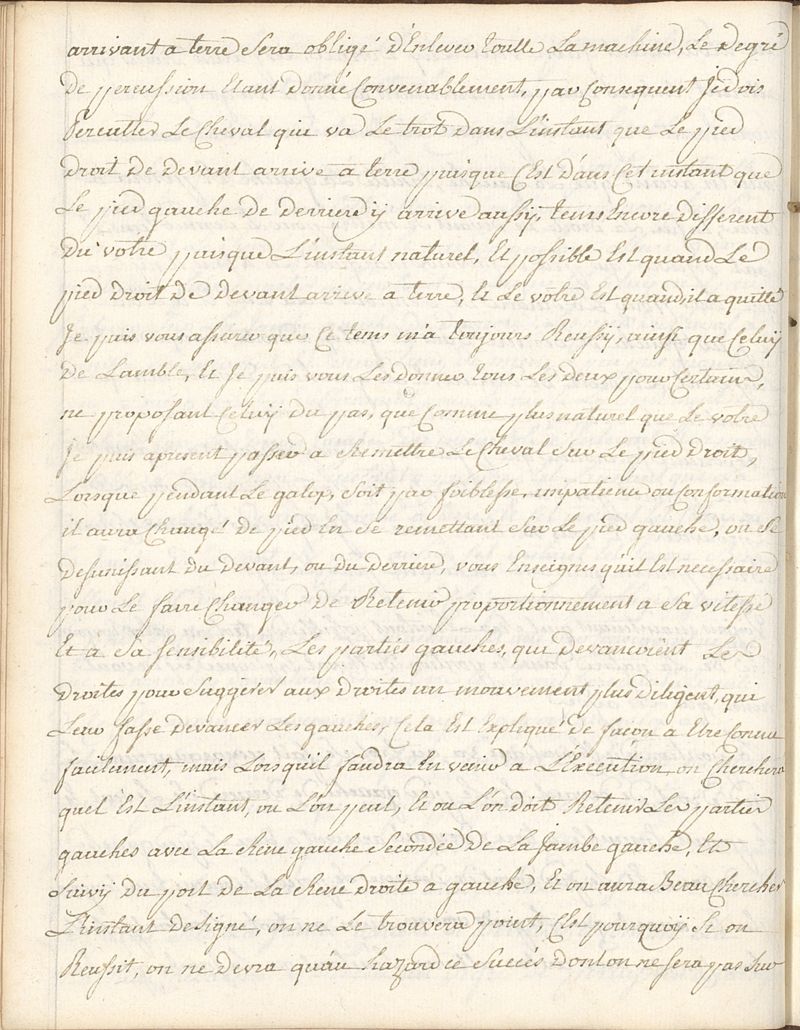 arrivant a terre Sera obligé d'Enlever toutte La machine, Le Degré
De percussion Etant Donné Convenablement, par Consequent Je dois
Percutter Le Cheval qui va Le trot Dans L'instant que Le pied
Droit De Devant arrive a terre puisque C'est Dans Cet instant que
Le pied gauche De Derriere y arrive aussy, tems Encore Different
Du votre puisque L'instant naturel, Et possible Est quand Le
pied Droit De Devant arrive a terre, Et Le votre Est quand il a quitté
Je puis vous assurer que Ce tems m'a toujours Reussy, ainsi que Celuy
De L'amble, Et Je puis vous Les donner tous Les Deux pour Certains,
ne proposant Celuy Du pas, que Comme plus naturel que Le votre
Je puis apresent passer a Remettre Le Cheval Sur Le pied Droit,
Lorsque pendant Le galop, Soit par foiblesse, impatience ou Conformation
il aura Changé De pied En Se remettant Sur Le pied gauche, ou Se
Desunissant Du Devant, ou Du Derriere, vous Enseignes qu'il Est necessaire
pour Le faire Changer De Retenir proportionnement a Sa vitesse
Et à Sa Sensibilité, Les parties gauches, qui Devancoient Les
Droites pour Suggerer aux Droites un mouvement plus Diligent, qui
Leur fasse Devancer Les gauches, Cela Est Expliqué De façon a Etre Connu
facilement, mais Lorsqu'il faudra En venir a L'Execution on Cherchera
quel Est L'instant, ou L'on peut, Et ou L'on doit Retenir Les parties
gauches avec La Rene gauche Secondée De La Jambe gauche, Et
Suivy Du port De La Rene Droite a gauche, Et on aura Beau Chercher
L'instant Designé, on ne Le trouvera point, C'est pourquoy Si on
Reussit, on ne Devra qu'au hazard ce Succés Dont on ne Sera pas Sur